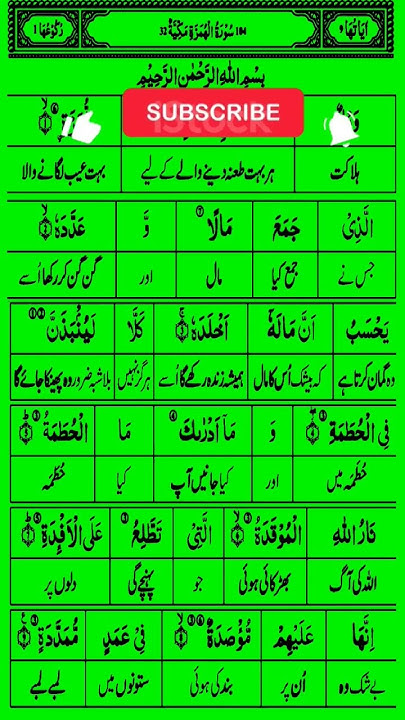 اٰیَاتُهَا 9 104 سُوْرَةُ الْهُمَزَةِ مَكِّیَّةٌ 32 رُكُوْعُهَا 1
بِسْمِ اللهِ الرَّحْمٰنِ الرَّحِیْمِ
SUBSCRIBE
ہلاکت ہر بہت طعنہ دینے والے کے لیے بہت عیب لگانے والا
الَّذِیْ جَمَعَ مَالًا وَّ عَدَّدَهٗ
جس نے جمع کیا مال اور گن گن کر رکھا اُسے
یَحْسَبُ اَنَّ مَالَهٗ اَخْلَدَهٗ كَلَّا لَیُنْۢبَذَنَّ
وہ گمان کرتا ہے کہ بیشک اُس کا مال ہمیشہ زندہ رکھے گا اُسے ہرگز نہیں بلاشبہ ضرور وہ پھینکا جائے گا
فِی الْحُطَمَةِ وَ مَاۤ اَدْرٰىكَ مَا الْحُطَمَةُ
حُطَمَہ میں اور کیا جانیں آپ کیا حُطَمَہ
نَارُ اللهِ الْمُوْقَدَةُ الَّتِیْ تَطَّلِعُ عَلَی الْاَفْـِٕدَةِ
اللہ کی آگ بھڑکائی ہوئی جو پہنچے گی دلوں پر
اِنَّهَا عَلَیْهِمْ مُّؤْصَدَةٌ فِیْ عَمَدٍ مُّمَدَّدَةٍ
بے شک وہ اُن پر بند کی ہوئی ستونوں میں لمبے لمبے